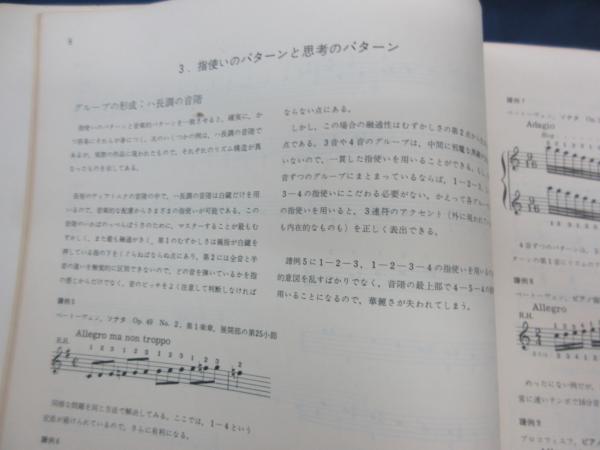 8
3．指使いのパターンと思考のパターン
グループの形成；ハ長調の音階
指使いのパターンと音楽的パターンを一致させると，確実に，か
つ容易にそれらが身につく。次のいくつかの例は，ハ長調の音階で
あるが，実際の作品に現われたもので，それぞれのリズム構造が異
なったものを示してある。
長短のディアトニックの音階の中で，ハ長調の音階は白鍵だけを用
いるので，音楽的な配慮からさまざまの指使いが可能である。この
音階のいわばのっぺらぼうのために，マスターすることが最もむ
ずかしく，また最も融通がきく。第1のむずかしさは親指が白鍵を
押している指の下をくぐらねばならぬ点にあり，第2には全音と半
音の違いを触覚的に区別できないので，どの音を弾いているかを指
の感じからだけでなく，音のピッチをよく注意して判断しなければ
譜例5
ベートーヴェン，ソナタ Op. 49 No. 2，第1楽章，展開部の第25小節
Allegro ma non troppo
R.H.
1 2 3 1 2 3 1 2 3 1 2 3 2
同様な問題を同じ方法で解決してみる。ここでは，1－4という
反復が避けられているので，さらに有利になる。
譜例6
ならない点にある。
しかし，この場合の融通性はむずかしさの第2点から
点である。3音や4音のグループは，中間に邪魔な黒鍵が
いないので，一貫した指使いを用いることができる。もし
音ずつのグループにまとまっているならば，1－2－3，1
3－4の指使いにこだわる必要がない。かえって各グループ
の指使いを用いると，3連符のアクセント（外に現われて
も内在的なものも）を正しく表出できる。
譜例5に1－2－3，1－2－3－4の指使いを用いるの
的意図を乱すばかりでなく，音階の最上部で4－5－4の
用いることになるので，華麗さが失われてしまう。
譜例7
ベートーヴェン，ソナタ Op.
Adagio
4音ずつのパターンは，
ターンの第1音にリズムの
譜例8
ベートーヴェン，ピアノ協
Allegro
R.H.
めったにない例だが，
常に速いテンポで16分音
譜例9
プロコフィエフ，ピアノ